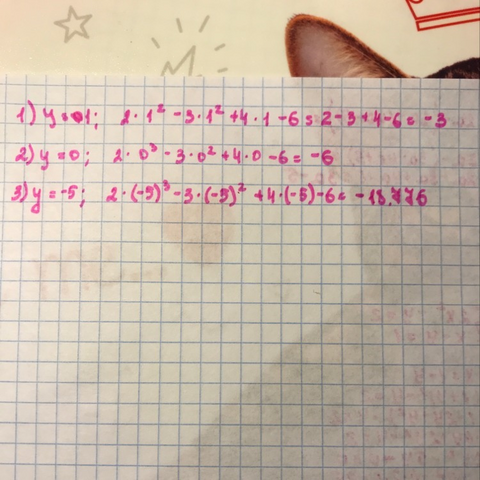 1) y = 1; 2·1² - 3·1² + 4·1 - 6 = 2 - 3 + 4 - 6 = -3
2) y = 0; 2·0³ - 3·0² + 4·0 - 6 = -6
3) y = -5; 2·(-5)³ - 3·(-5)² + 4·(-5) - 6 = -18.776